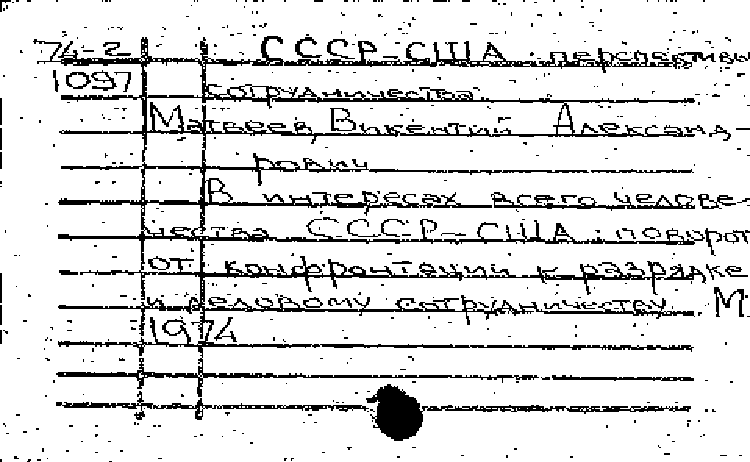 74-2 СССР-США: перспективы
1097 сотрудничества
Матвеев, Викентий Александ-
рович
В интересах всего челове-
чества СССР-США: поворот
от конфронтации к разрядке
и деловому сотрудничеству. М
1974